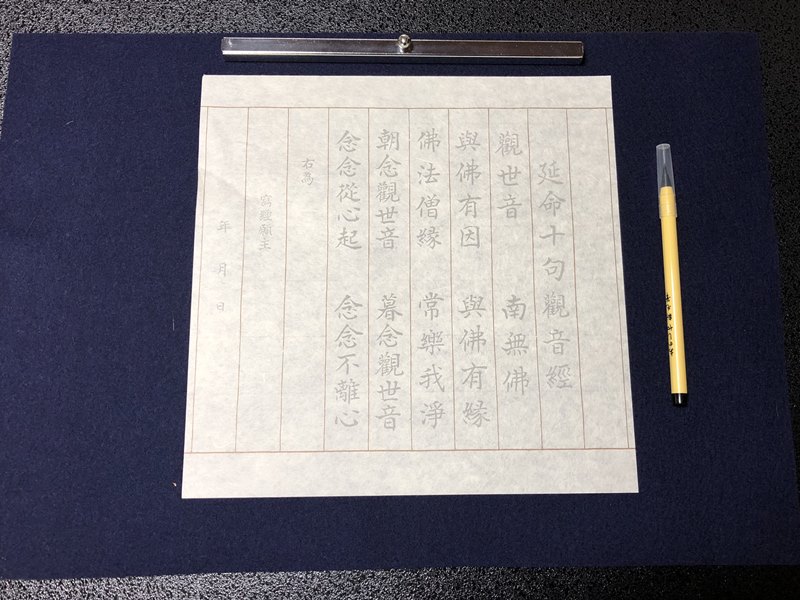 延命十句觀音經
觀世音 南無佛
與佛有因 與佛有緣
佛法僧緣 常樂我淨
朝念觀世音 暮念觀世音
念念從心起 念念不離心
右為
年 月 日